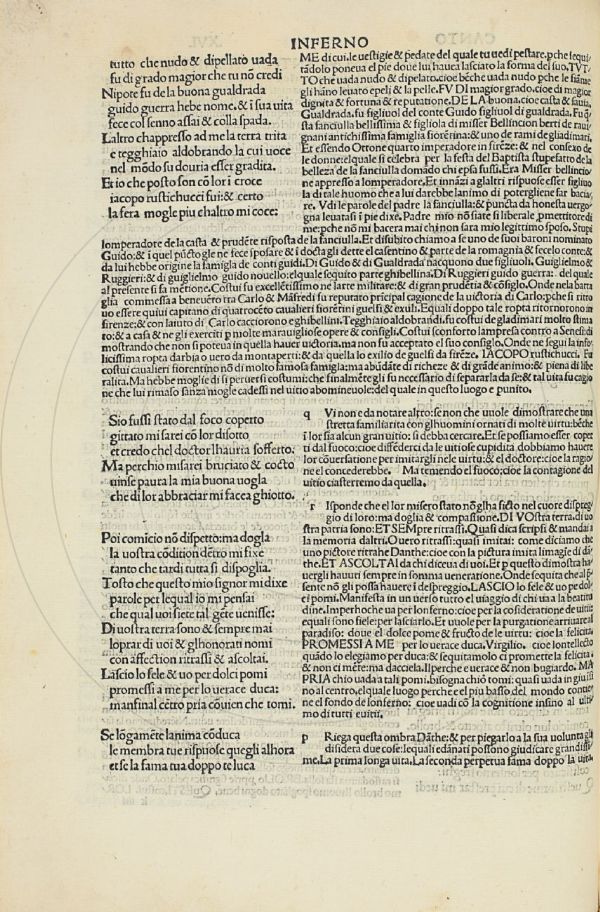 INFERNO
tutto che nudo & dipellato uada
fu di grado magior che tu nõ credi
Nipote fu de la buona gualdrada
guido guerra hebe nome. & i sua uita
fece col senno assai & colla spada.
Laltro chappresso ad me la terra trita
e tegghiaio aldobrando la cui uoce
nel mõdo su douria esser gradita.
Et io che posto son cõ lor i croce
iacopo rustichucci fui: & certo
la fera mogle piu chaltro mi coce:
ME di cui. le uestigie & pedate del quale tu uedi pestare. pche sequi
tãdolo poneua el pie doue lui hauea lasciato la forma del suo. TVT
TO che uada nudo & dipelato. cioe bẽche uada nudo pche le fiãme
gli hãno leuato epeli & la pelle. FV DI magior grado. cioe di magior
dignita & fortuna & reputatione. DE LA buona. cioe casta & fauia.
Gualdrada. fu figliuol del conte Guido figliuol di gualdrada. Fu q̃
sta fanciulla bellissima & figliola di misser Bellincion berti de raui
gnani antichissima famiglia fiorẽtina: & uno de rami de gliadimari.
Et essendo Ottone quarto imperadore in firẽze: & nel consexo de
le donne: elquale si celebra per la festa del Baptista stupefatto de la
belleza de la fanciulla domãdo chi epsa fussi. Era Misser bellincio
ne appresso a lomperadore. Et innãzi a glaltri rispuose esser figliuo
la di tale huomo che a lui darebbe lanimo di potergliene far bacia
re. Vdi le parole del padre la fanciulla: & puncta da honesta uergo
gna leuatasi i pie dixe. Padre mio nõ siate si liberale pmettitore di
me: pche nõ mi bacera mai chi non sara mio legittimo sposo. Stupi
lomperadore de la casta & prudẽte risposta de la fanciulla. Et disubito chiamo a se uno de suoi baroni nominato
Guido: & i quel pũcto gle ne fece sposare & i docta gli dette el casentino & parte de la romagna & fecelo conte: &
da lui hebbe origine la famiglia de conti guidi. Di Guido & di Gualdrada nacquono due figliuoli. Guiglielmo &
Ruggieri: & di guiglielmo guido nouello: elquale sequito parte ghibellina. Di Ruggieri guido guerra: del quale
al presente si fa mẽtione. Costui fu excellẽtissimo ne larte militare: & di gran prudẽtia & cõsiglo. Onde ne la batta
glia commessa a beneuẽto tra Carlo & Mãfredi fu reputato principal cagione de la uictoria di Carlo: pche si ritro
uo essere quiui capitano di quatrocẽto caualieri fiorẽtini guelfi & exuli. Equali doppo tale ropta ritornorono in
firenze: & con laiuto di Carlo cacciorono eghibellini. Tegghiaio aldobrandi. fu costui de gladimari molto stima
to: & a casa & ne gli exerciti p molte marauigliose opere & consigli. Costui sconforto lampresa contro a Senesi: di
mostrando che non si poteua in quella hauer uictoria. ma non fu acceptato el suo consiglo. Onde ne segui la infe
licissima ropta darbia o uero da montaperti: & da quella lo exilio de guelfi da firẽze. IACOPO rustichucci. Fu
costui caualieri fiorentino nõ di molto famosa famiglia: ma abũdãte di richeze & di grãde animo: & piena di libe
ralita. Ma hebbe moglie di si peruersi costumi: che finalmẽte gli fu necessario di separarla da se: & tal uita fu cagio
ne che lui rimaso sanza mogle cadessi nel uitio abomineuole: del quale in questo luogo e punito.
Sio fussi stato dal foco coperto
gittato mi sarei cõ lor disotto
et credo chel doctor lhauria sofferto.
Ma perchio misarei bruciato & cocto
uinse paura la mia buona uogla
che di lor abbraciar mi facea ghiotto.
q Vi non e da notare altro: se non che uuole dimostrare che una
stretta familiarita con glhuomini ornati di molte uirtu: bẽche
i lor sia alcun gran uitio: si debba cercare. Et se possiamo esser copet
ti dal fuoco: cioe differderci da le uitiose cupidita dobbiamo hauere
lor cõuersatione per imitargli nele uirtu: & el doctore: cioe la ragio
ne el concederebbe. Ma temendo el fuoco: cioe la contagione del
uitio ciasterremo da quella.
Poi comicio nõ dispetto: ma dogla
la uostra cõdition dẽtro mi fixe
tanto che tardi tutta si dispoglia.
Tosto che questo mio signor mi dixe
parole per lequal io mi pensai
che qual uoi siete tal gẽte uenisse:
Di uostra terra sono & sempre mai
loprar di uoi & glhonorati nomi
con affection ritrassi & ascoltai.
Lascio lo fele & uo per dolci pomi
promessi a me per lo uerace duca:
mansinal cẽtro pria cõuien che tomi.
r Isponde che el lor misero stato nõ glha ficto nel cuore dispreg
gio di loro: ma doglia & compassione. DI VOstra terra. di uo
stra patria sono: ET SEMpre ritrassi. Quasi dica scripsi & mandai a
la memoria daltri. Ouero ritrassi: quasi imitai: come diciamo che
uno pictore ritrahe Danthe: cioe con la pictura imita limagie di dã
the. ET ASCOLTAI da chi diceua di uoi. Et p questo dimostra ha
uergli hauuti sempre in somma ueneratione. Onde sequita che al p̃
sente nõ gli possa hauere i despreggio. LASCIO lo fele & uo pe dol
ci pomi. Manifesta in un uerso tutto el uiaggio di chi ua a la beatitu
dine. Imperhoche ua per lonferno: cioe per la cosideratione de uitii:
equali sono fiele: per lasciarlo. Et uuole per la purgatione arriuare al
paradiso: doue el dolce pome & fructo de le uirtu: cioe la felicita.
PROMESSI A ME per lo uerace duca. Virgilio. cioe lontellecto
quãdo lo elegiamo per duca: & sequitamolo ci promette la felicita.
& non di mẽte: ma daccuela. Ilperche e uerace & non bugiardo. MA
PRIA chio uada a tali pomi. bisogna chio tomi: quasi uada in giu insi
no al centro. elquale luogo perche e el piu basso del mondo contie
ne el fondo de lonferno: cioe uadi cõ la cognitione insino al ulti
mo di tutti euitii.
Se lõgamẽte lanima cõduca
le membra tue rispuose quegli alhora
et se la fama tua doppo te luca
p Riega questa ombra Dãthe: & per piegarlo a la sua uolunta gli
disidera due cose: lequali edãnati possono giudicare grandissi
me. La prima longa uita. La seconda perpetua fama doppo la uita.